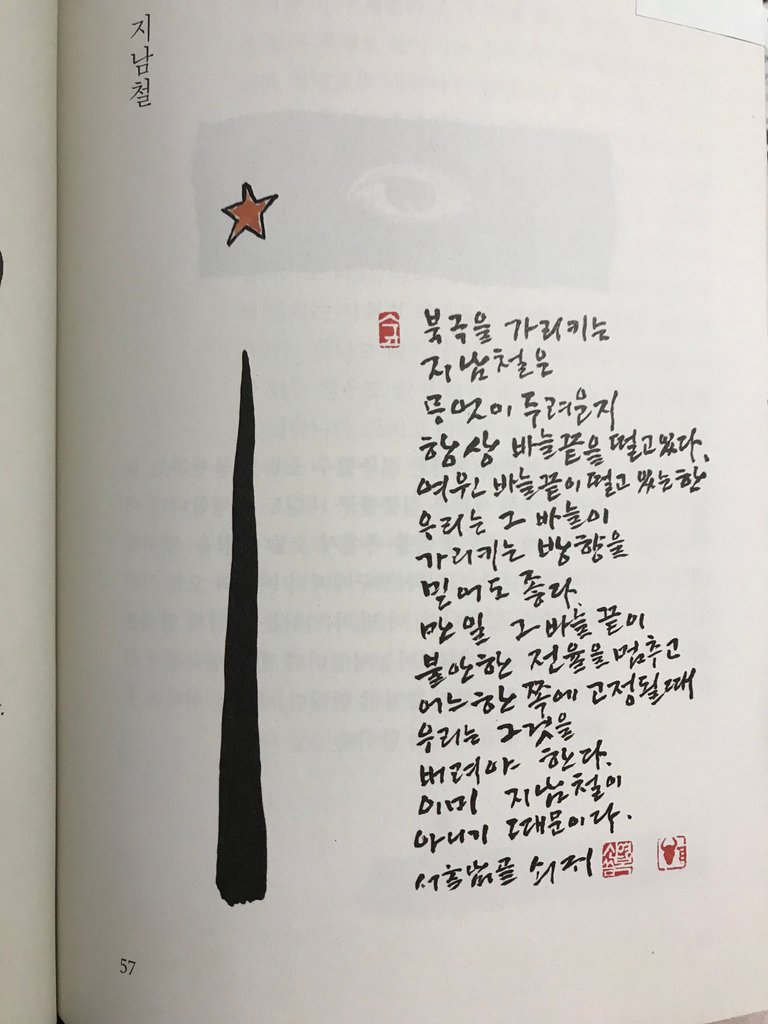 지남철
북극을 가리키는
지남철은
무엇이 두려운지
항상 바늘끝을 떨고있다.
여윈 바늘끝이 떨고 있는한
우리는 그 바늘이
가리키는 방향을
믿어도 좋다.
만일 그 바늘끝이
불안한 전율을 멈추고
어느한쪽에 고정될때
우리는 그것을
버려야 한다.
이미 지남철이
아니기 때문이다.
쇠귀
57